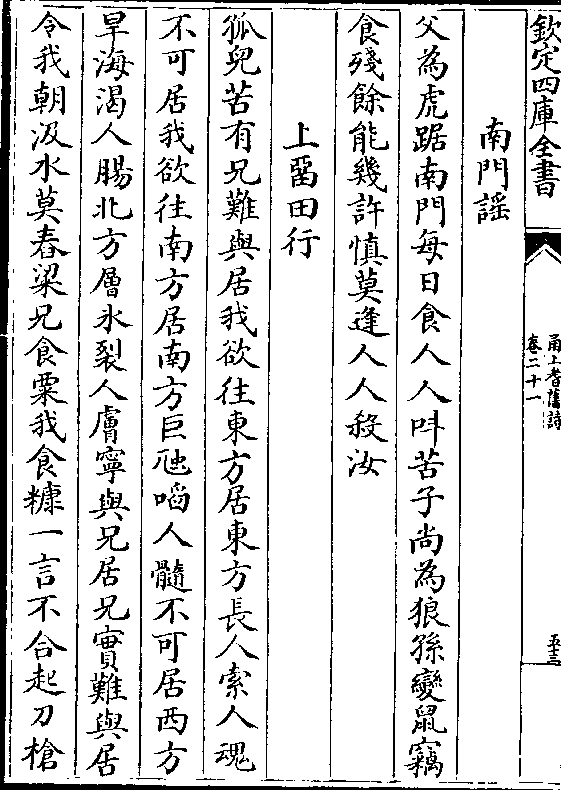 欽定四庫全書
甬上耆舊詩
卷二十一
五十三
南門謡
父為虎踞南門每日食人人呌苦子尚為狼孫變鼠竊
食殘餘能幾許慎莫逢人人殺汝
上畱田行
孤兒苦有兄難與居我欲往東方居東方長人索人魂
不可居我欲往南方居南方巨虺啗人髓不可居西方
旱海渴人腸北方層氷裂人膚寧與兄居兄實難與居
令我朝汲水莫舂梁兄食粟我食糠一言不合起刀槍